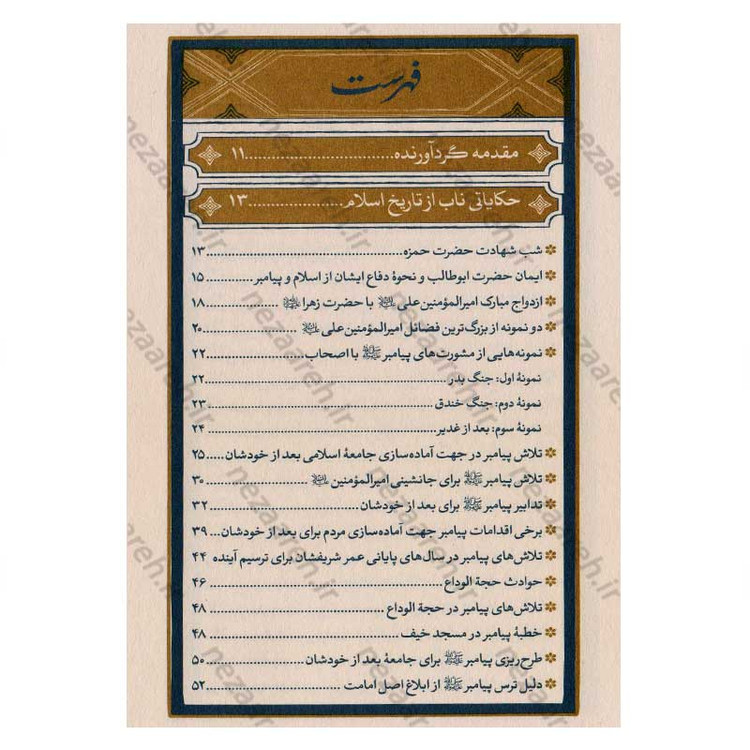 فهرست
مقدمه گردآورنده..................................۱۱
حکایاتی ناب از تاریخ اسلام.....................۱۳
شب شهادت حضرت حمزه..................................۱۳
ایمان حضرت ابوطالب و نحوهٔ دفاع ایشان از اسلام و پیامبر.............۱۵
ازدواج مبارک امیرالمؤمنین علی علیه‌السلام با حضرت زهرا علیهاالسلام..................۱۸
دو نمونه از بزرگ‌ترین فضائل امیرالمؤمنین علی علیه‌السلام..................۲۰
نمونه‌هایی از مشورت‌های پیامبر ﷺ با اصحاب..................۲۲
نمونهٔ اول: جنگ بدر..................................۲۲
نمونهٔ دوم: جنگ خندق..................................۲۳
نمونهٔ سوم: بعد از غدیر..................................۲۴
تلاش پیامبر در جهت آماده‌سازی جامعهٔ اسلامی بعد از خودشان.....۲۵
تلاش پیامبر ﷺ برای جانشینی امیرالمؤمنین علیه‌السلام..................۳۰
تدابیر پیامبر ﷺ برای بعد از خودشان..................۳۲
برخی اقدامات پیامبر جهت آماده‌سازی مردم برای بعد از خودشان...۳۹
تلاش‌های پیامبر در سال‌های پایانی عمر شریفشان برای ترسیم آینده ۴۴
حوادث حجة الوداع..................................۴۶
تلاش‌های پیامبر در حجة الوداع..................................۴۸
خطبهٔ پیامبر در مسجد خیف..................................۴۸
طرح‌ریزی پیامبر ﷺ برای جامعهٔ بعد از خودشان..................۵۰
دلیل ترس پیامبر ﷺ از ابلاغ اصل امامت..................۵۲
nezaareh.ir